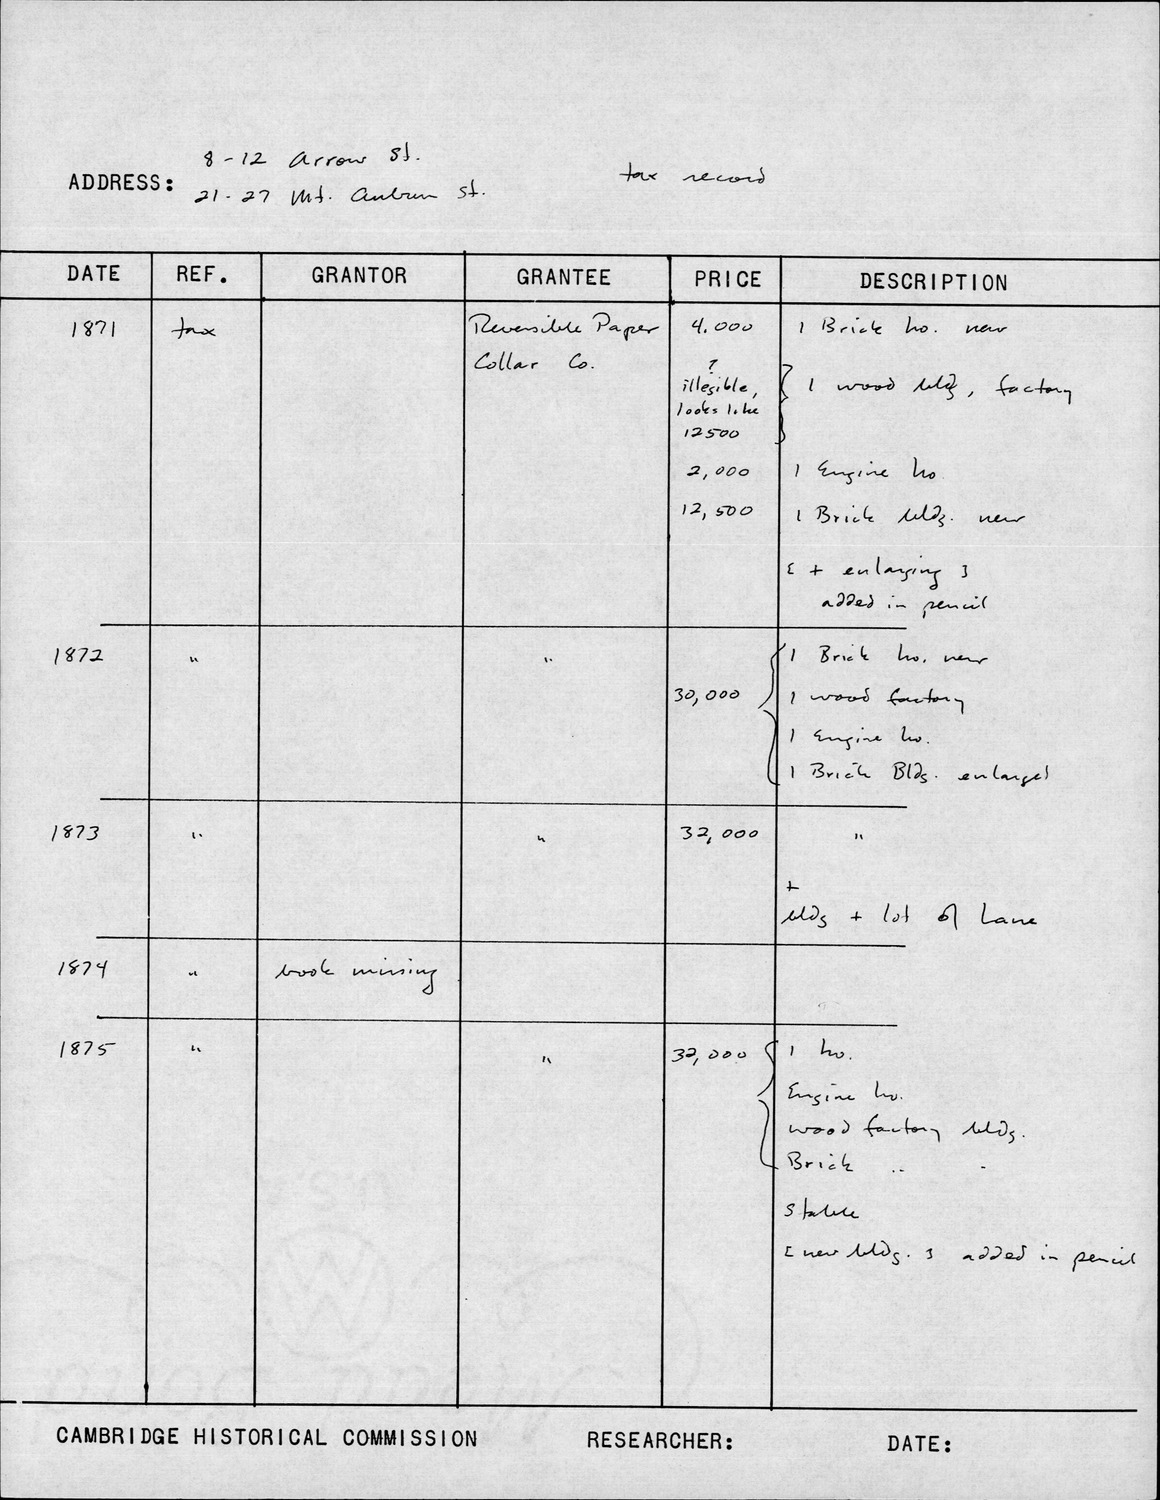 8-12 Arrow St.
ADDRESS: 21-27 Mt. Auburn St. tax record
DATE REF. GRANTOR GRANTEE PRICE DESCRIPTION
1871 tax Reversible Paper 4.000 1 Brick ho. new
Collar Co. ?
illegible, { 1 wood bldg, factory
looks like
12500
2,000 1 Engine ho.
12,500 1 Brick bldg. new
[ + enlarging ]
added in pencil
1872 " " 1 Brick ho. new
30,000 { 1 wood factory
1 Engine ho.
1 Brick Bldg. enlarged
1873 " " 32,000 "
+
bldg + lot of Lane
1874 " book missing
1875 " " 32,000 { 1 ho.
Engine ho.
wood factory bldg.
Brick " "
Stable
[new bldg.] added in pencil
CAMBRIDGE HISTORICAL COMMISSION RESEARCHER: DATE: